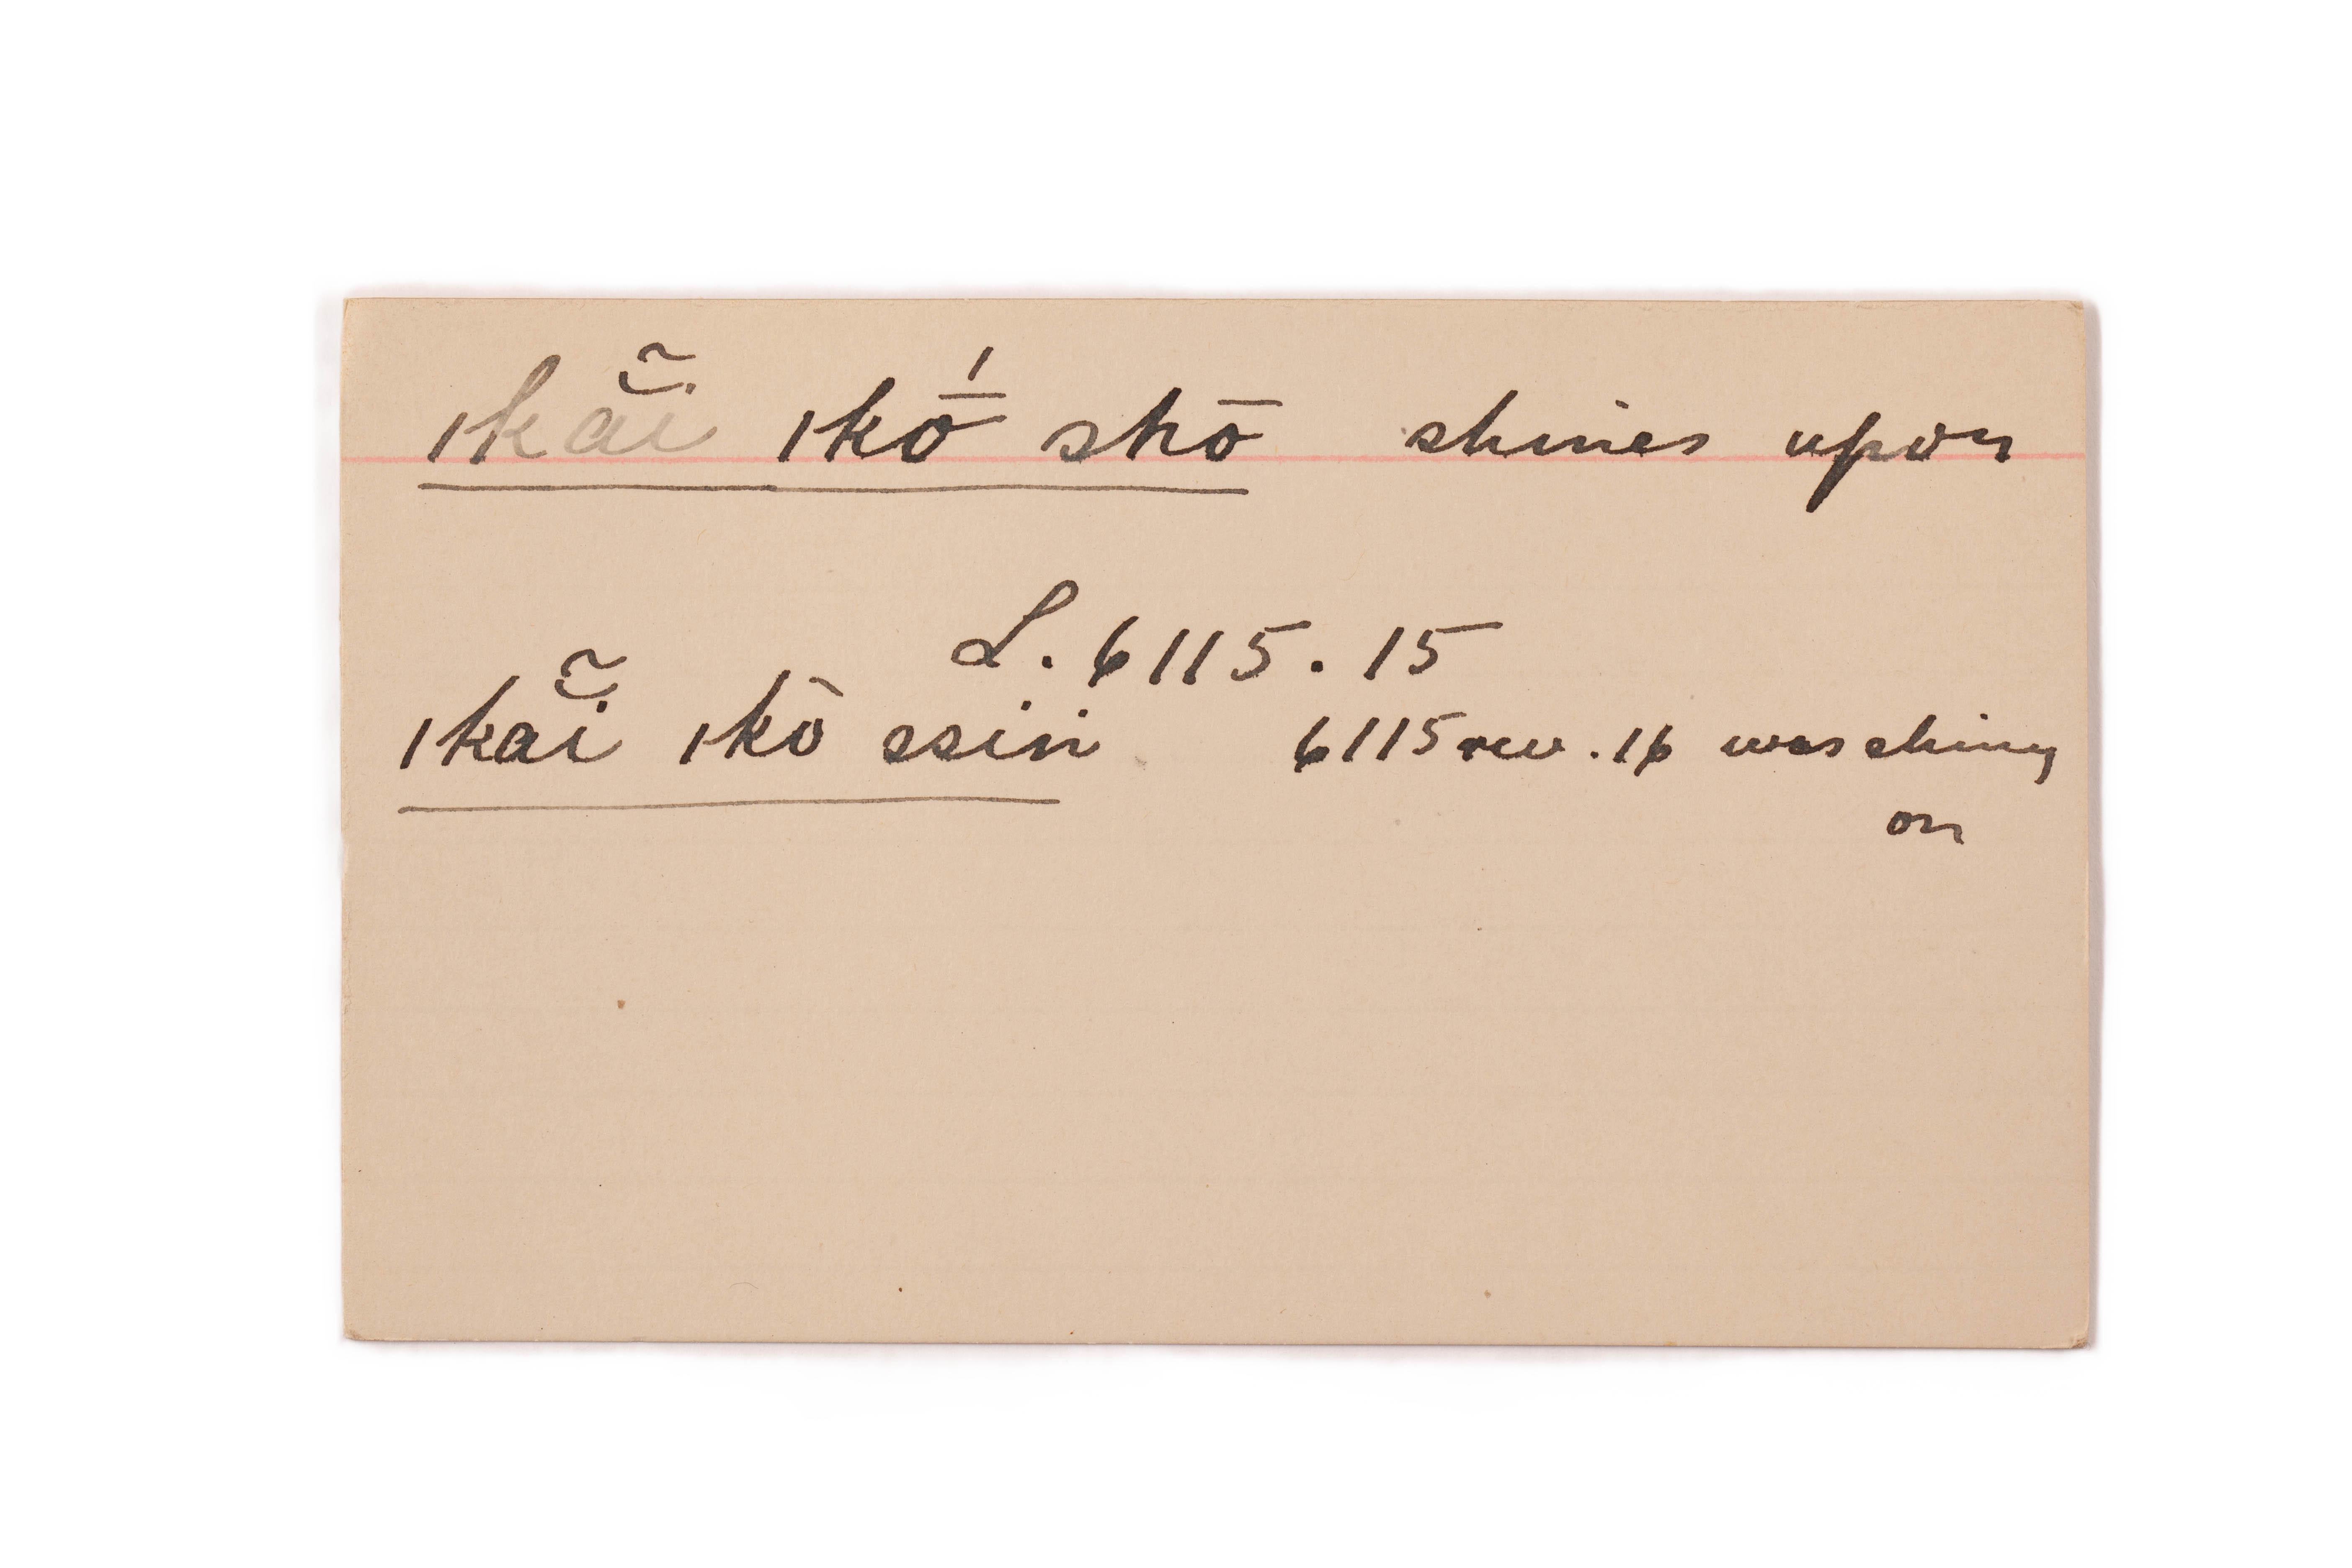 ıkaĭ̃ ıkṓ shō shines upon
L. 6115.15
ıkaĭ̃ ıkō ssin 6115 rev. 16 was shining
on